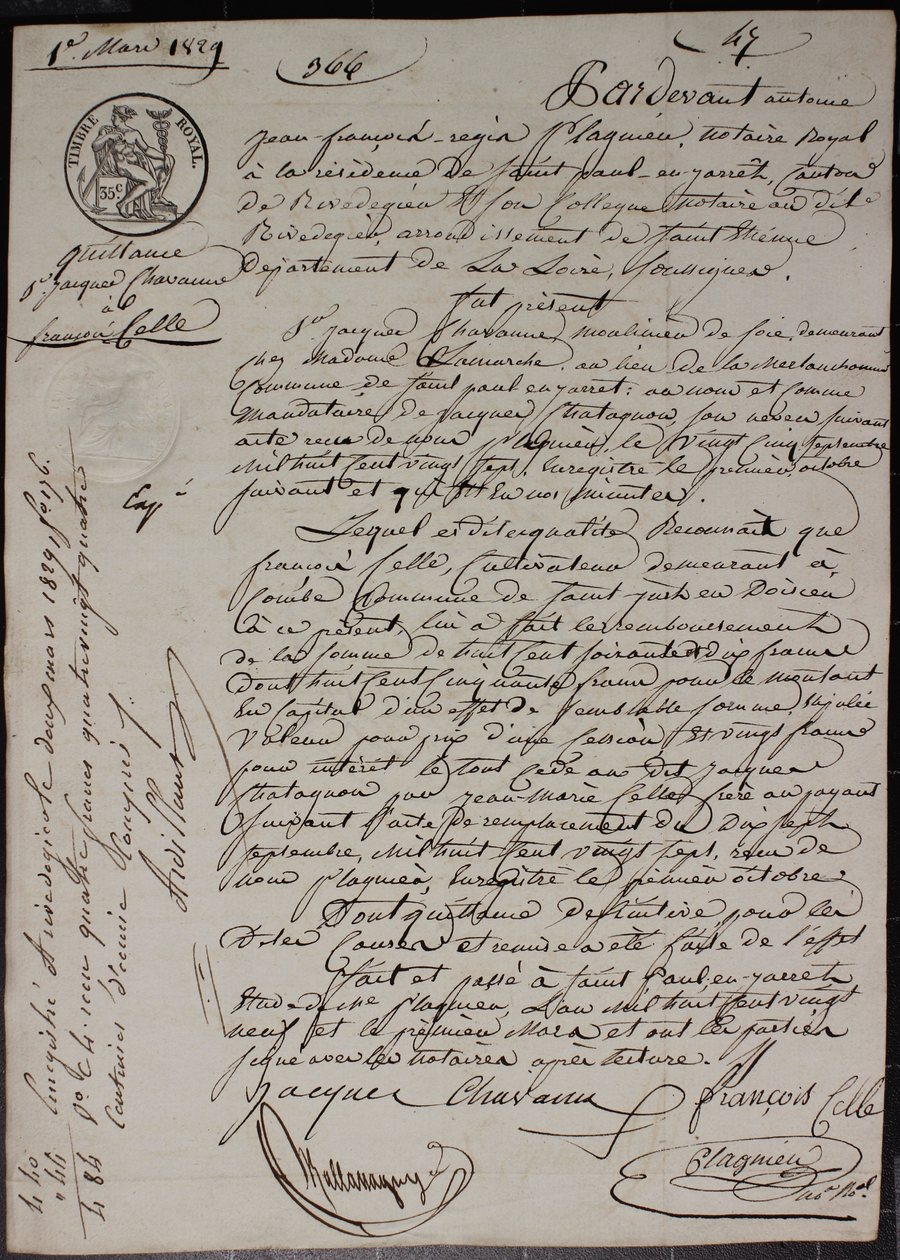 1er Mars 1829
366
47
TIMBRE ROYAL.
35c
quittance
Sr. jacques Chavanne
à
françois Celle
Exp é
Pardevant antoine
jean-françois-regis Plagnieu, notaire Royal
à la résidence de Saint paul-en-jarrêt, Canton
de Rivedegiér Et Son Collegue Notaire au dit
Rivedegiér, arrondissement de Saint Etiénne
Département de La Loiré, Soussignés.
fut présent
Sr. jacques Chavanne, moulinieu de soie, demeurant
chez Madame Lamarche, au lieu de la
Commune de Saint paul en jarret: au nom et Comme
Mandataire de jacques Chatagnon, son neveu suivant
acte recu de nous Plagnieu, le Vingt Cinq Septembre
Mil huit Cent vingt Sept, Enregistré le premier octobre
suivant et qui est En nos minutes.
Lequel es dites qualités Reconnait que
françois Celle, Cultivateur demeurant à
Combe Commune de Saint-just en Doisieu
à ce présent, lui a fait le remboursement
de la Somme de huit Cent soixante et dix francs
Dont huit Cent Cinquante francs pour le montant
En Capital d'un effet de semblable somme, stipulée
Valeur pour prix d'une Cession Et vingt francs
pour intérêt le tout cédé au dit jacques
Chatagnon par jean-Marie Celle frère au payant
Suivant l'acte de remplacement du Dix sept
septembre, Mil huit Cent vingt Sept, recu de
nous Plagnieu, Enregistré le premier octobre
Dont quittance définitive pour les
Dites Causes et remise a été faite de l'effet
fait et passé à Saint Paul-en-jarret
Etude de Me Plagnieu, L'an Mil huit Cent vingt
neuf et le prémier Mars et ont les parties
signé avec les notaires après lecture.
jacques Chavanne
françois Celle
Plagnieu
Enrégistré à rivedegier le deux mars 1829, fo 176.
Vo C 4 recu quatre francs quatrevingt quatre
Centimes décime Compris
4 40
" 44
4 84